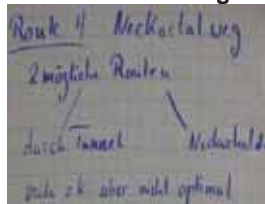 Route 4 Neckartalweg
2 mögliche Routen
durch Tunnel
ok aber nicht optimal